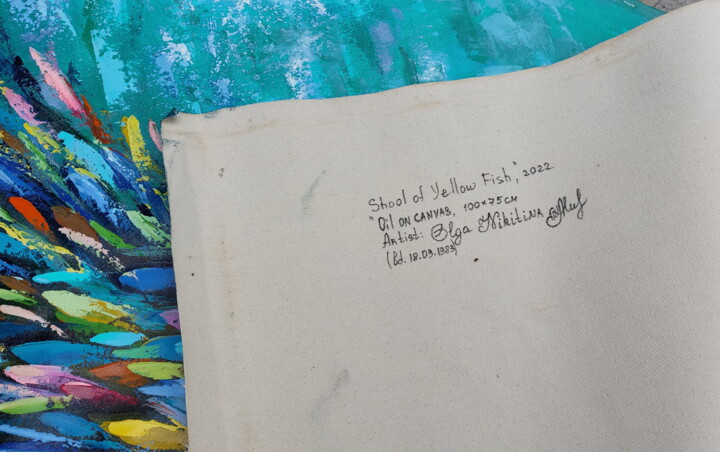 Shool of Yellow Fish", 2022
"Oil on canvas, 100×75cm
Artist: Olga Nikitina
(bd. 18.09.1983)